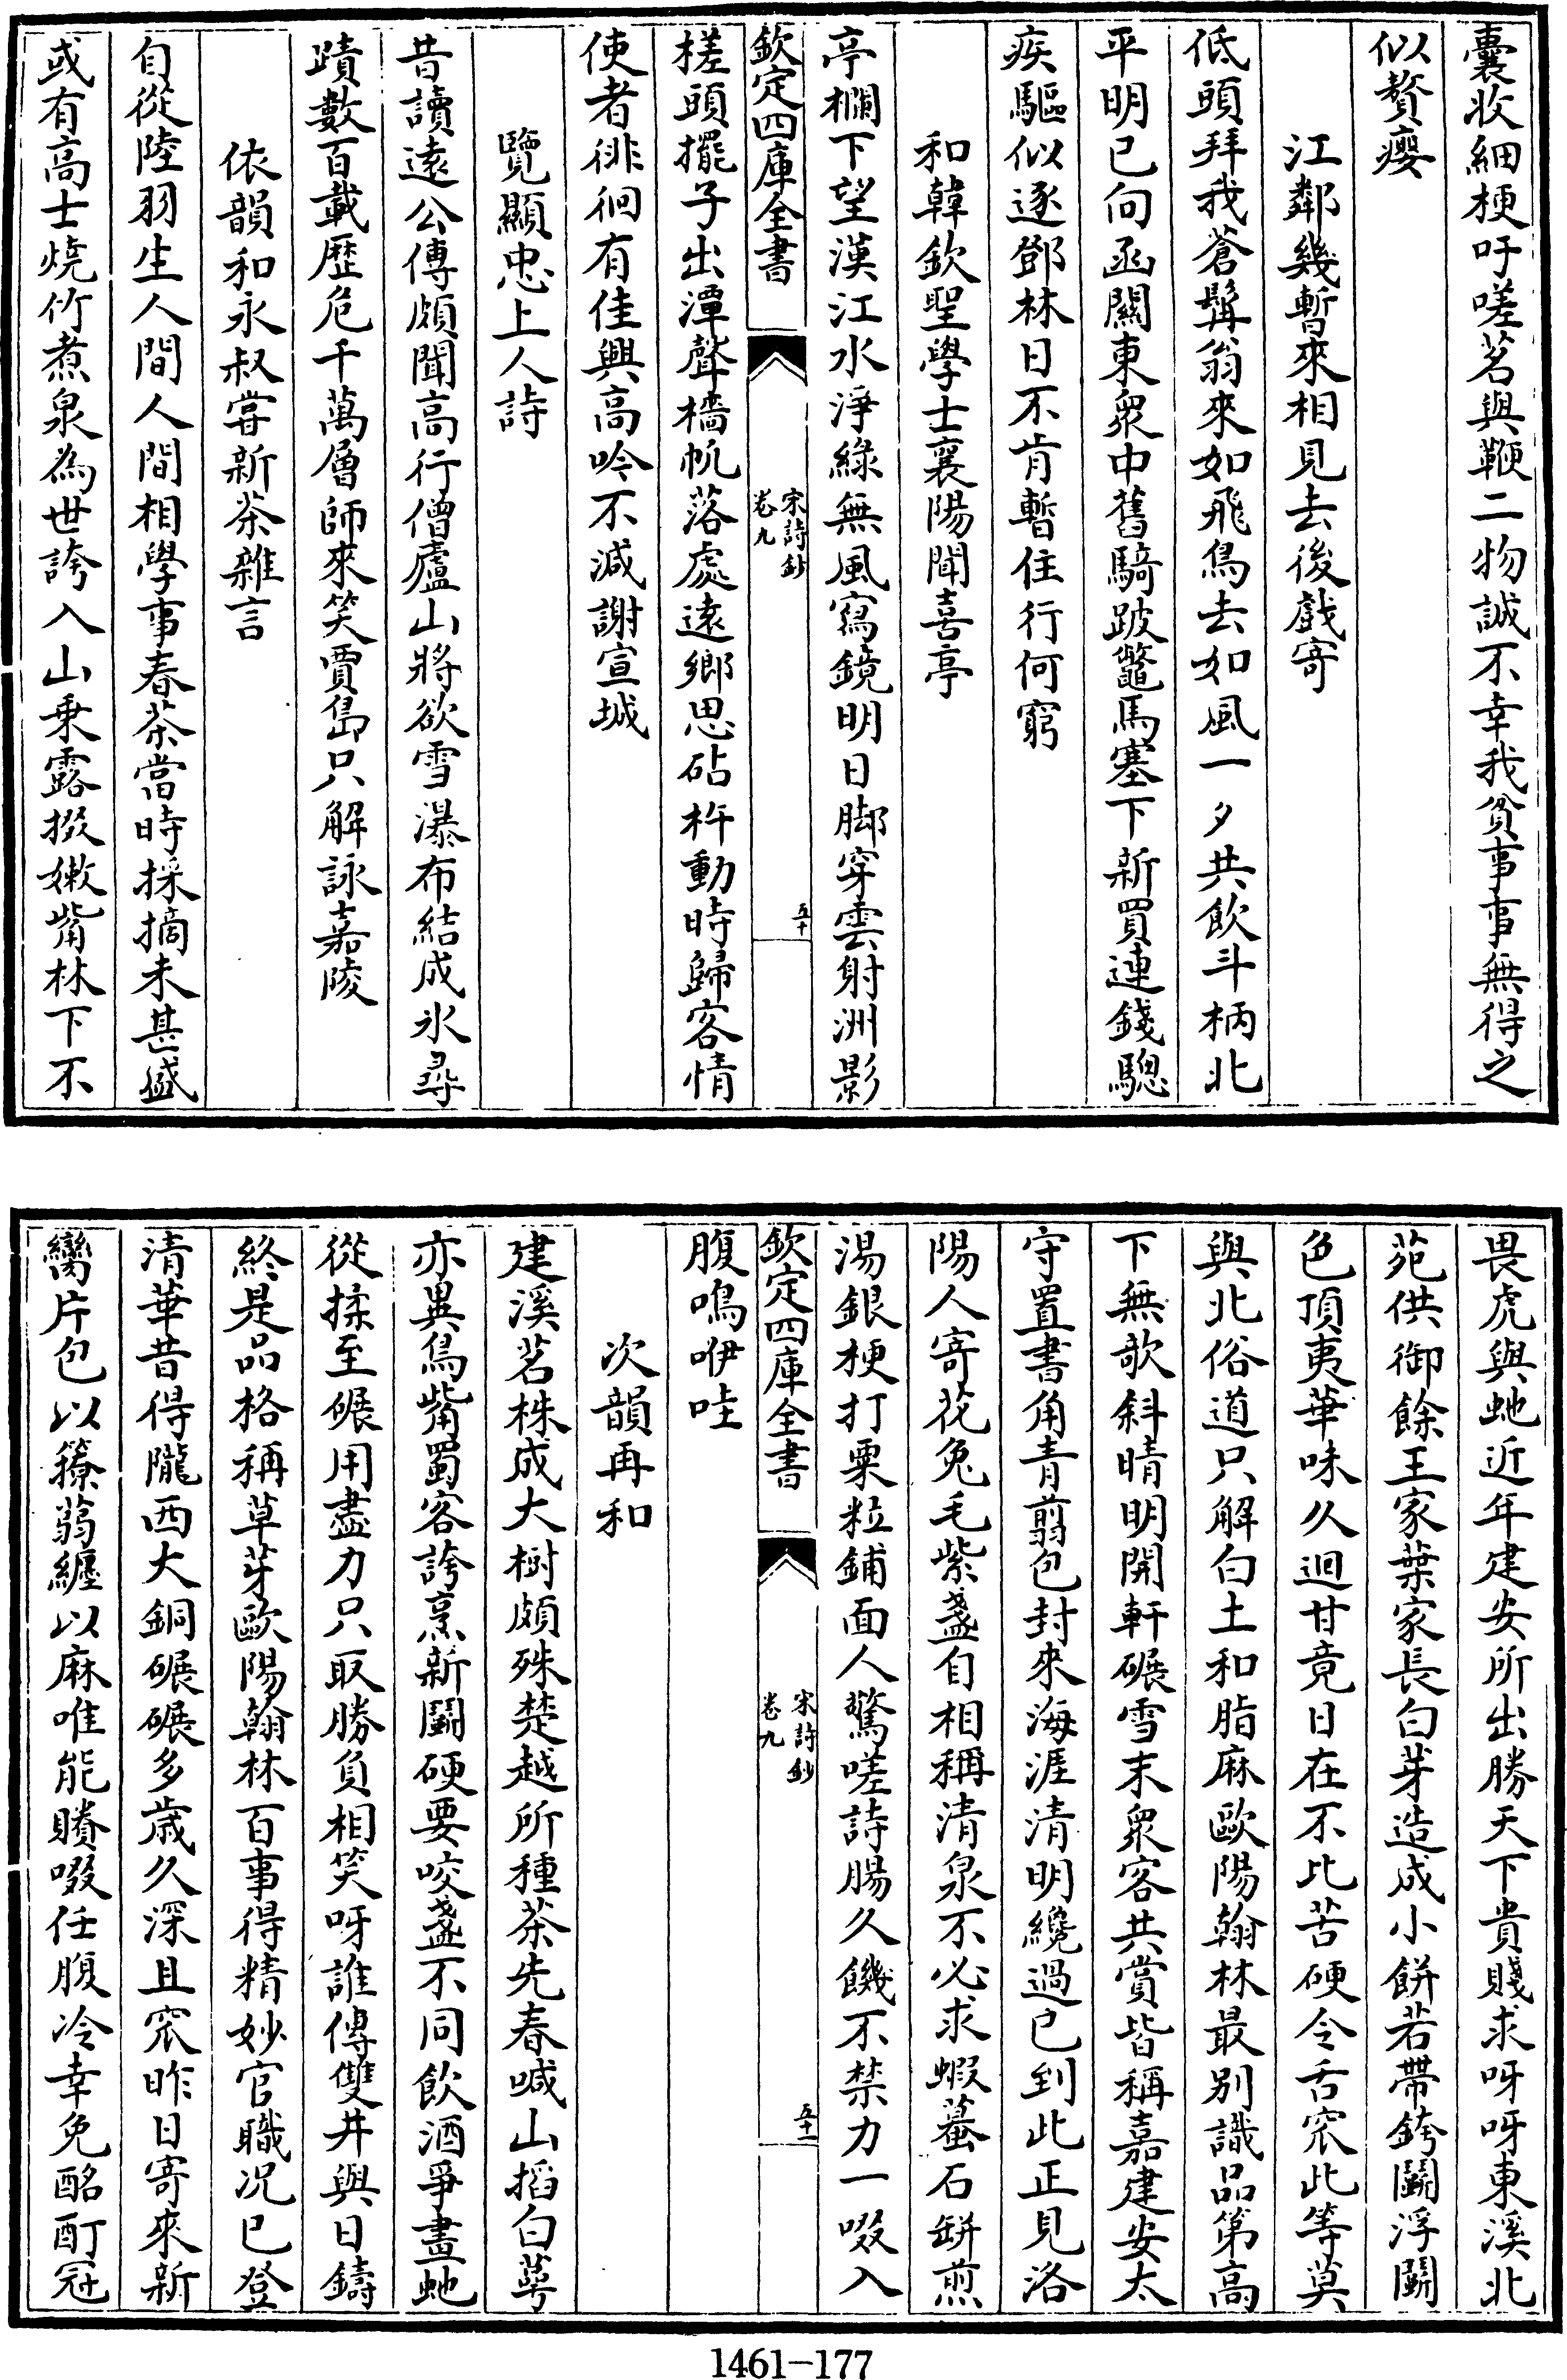 囊收細梗吁嗟茗與鞭二物誠不幸我貧事事無得之
似贅癭
江鄰幾暫來相見去後戲寄
低頭拜我蒼髯翁來如飛鳥去如風一夕共飲斗柄北
平明已向函關東衆中舊騎跛鼈馬塞下新買連錢驄
疾驅似逐鄧林日不肯暫住行何窮
和韓欽聖學士襄陽聞喜亭
亭欄下望漢江水淨綠無風寫鏡明日脚穿雲射洲影
欽定四庫全書
宋詩鈔
卷九
五十
槎頭擺子出潭聲檣帆落處遠鄉思砧杵動時歸客情
使者徘徊有佳興高吟不減謝宣城
覽顯忠上人詩
昔讀遠公傳頗聞高行僧廬山將欲雪瀑布結成氷尋
蹟數百載歴危千萬層師來笑賈島只解詠嘉陵
依韻和永叔甞新茶雜言
自從陸羽生人間人間相學事春茶當時採摘未甚盛
或有高士燒竹煮泉為世誇入山乗露掇嫩觜林下不
畏虎與虵近年建安所出勝天下貴賤求呀呀東溪北
苑供御餘王家葉家長白芽造成小餅若帶銙鬭浮鬭
色頂夷華味久迴甘竟日在不比苦硬令舌窊此等莫
與北俗道只解白土和脂麻歐陽翰林最别識品第高
下無欹斜晴明開軒碾雪末衆客共賞皆稱嘉建安太
守置書角青蒻包封來海涯清明纔過已到此正見洛
陽人寄花兔毛紫盞自相稱清泉不必求蝦蟇石缾煎
湯銀梗打粟粒鋪面人驚嗟詩腸久饑不禁力一啜入
欽定四庫全書
宋詩鈔
卷九
五十一
腹鳴咿哇
次韻再和
建溪茗株成大樹頗殊楚越所種茶先春喊山掐白萼
亦異鳥觜蜀客誇烹新鬭硬要咬盞不同飲酒爭畫虵
從揉至碾用盡力只取勝負相笑呀誰傳雙井與日鑄
終是品格稱草芽歐陽翰林百事得精妙官職况已登
清華昔得隴西大銅碾碾多歲久深且窊昨日寄來新
臠片包以籜蒻纏以麻唯能賸啜任腹冷幸免酩酊冠
1461-177